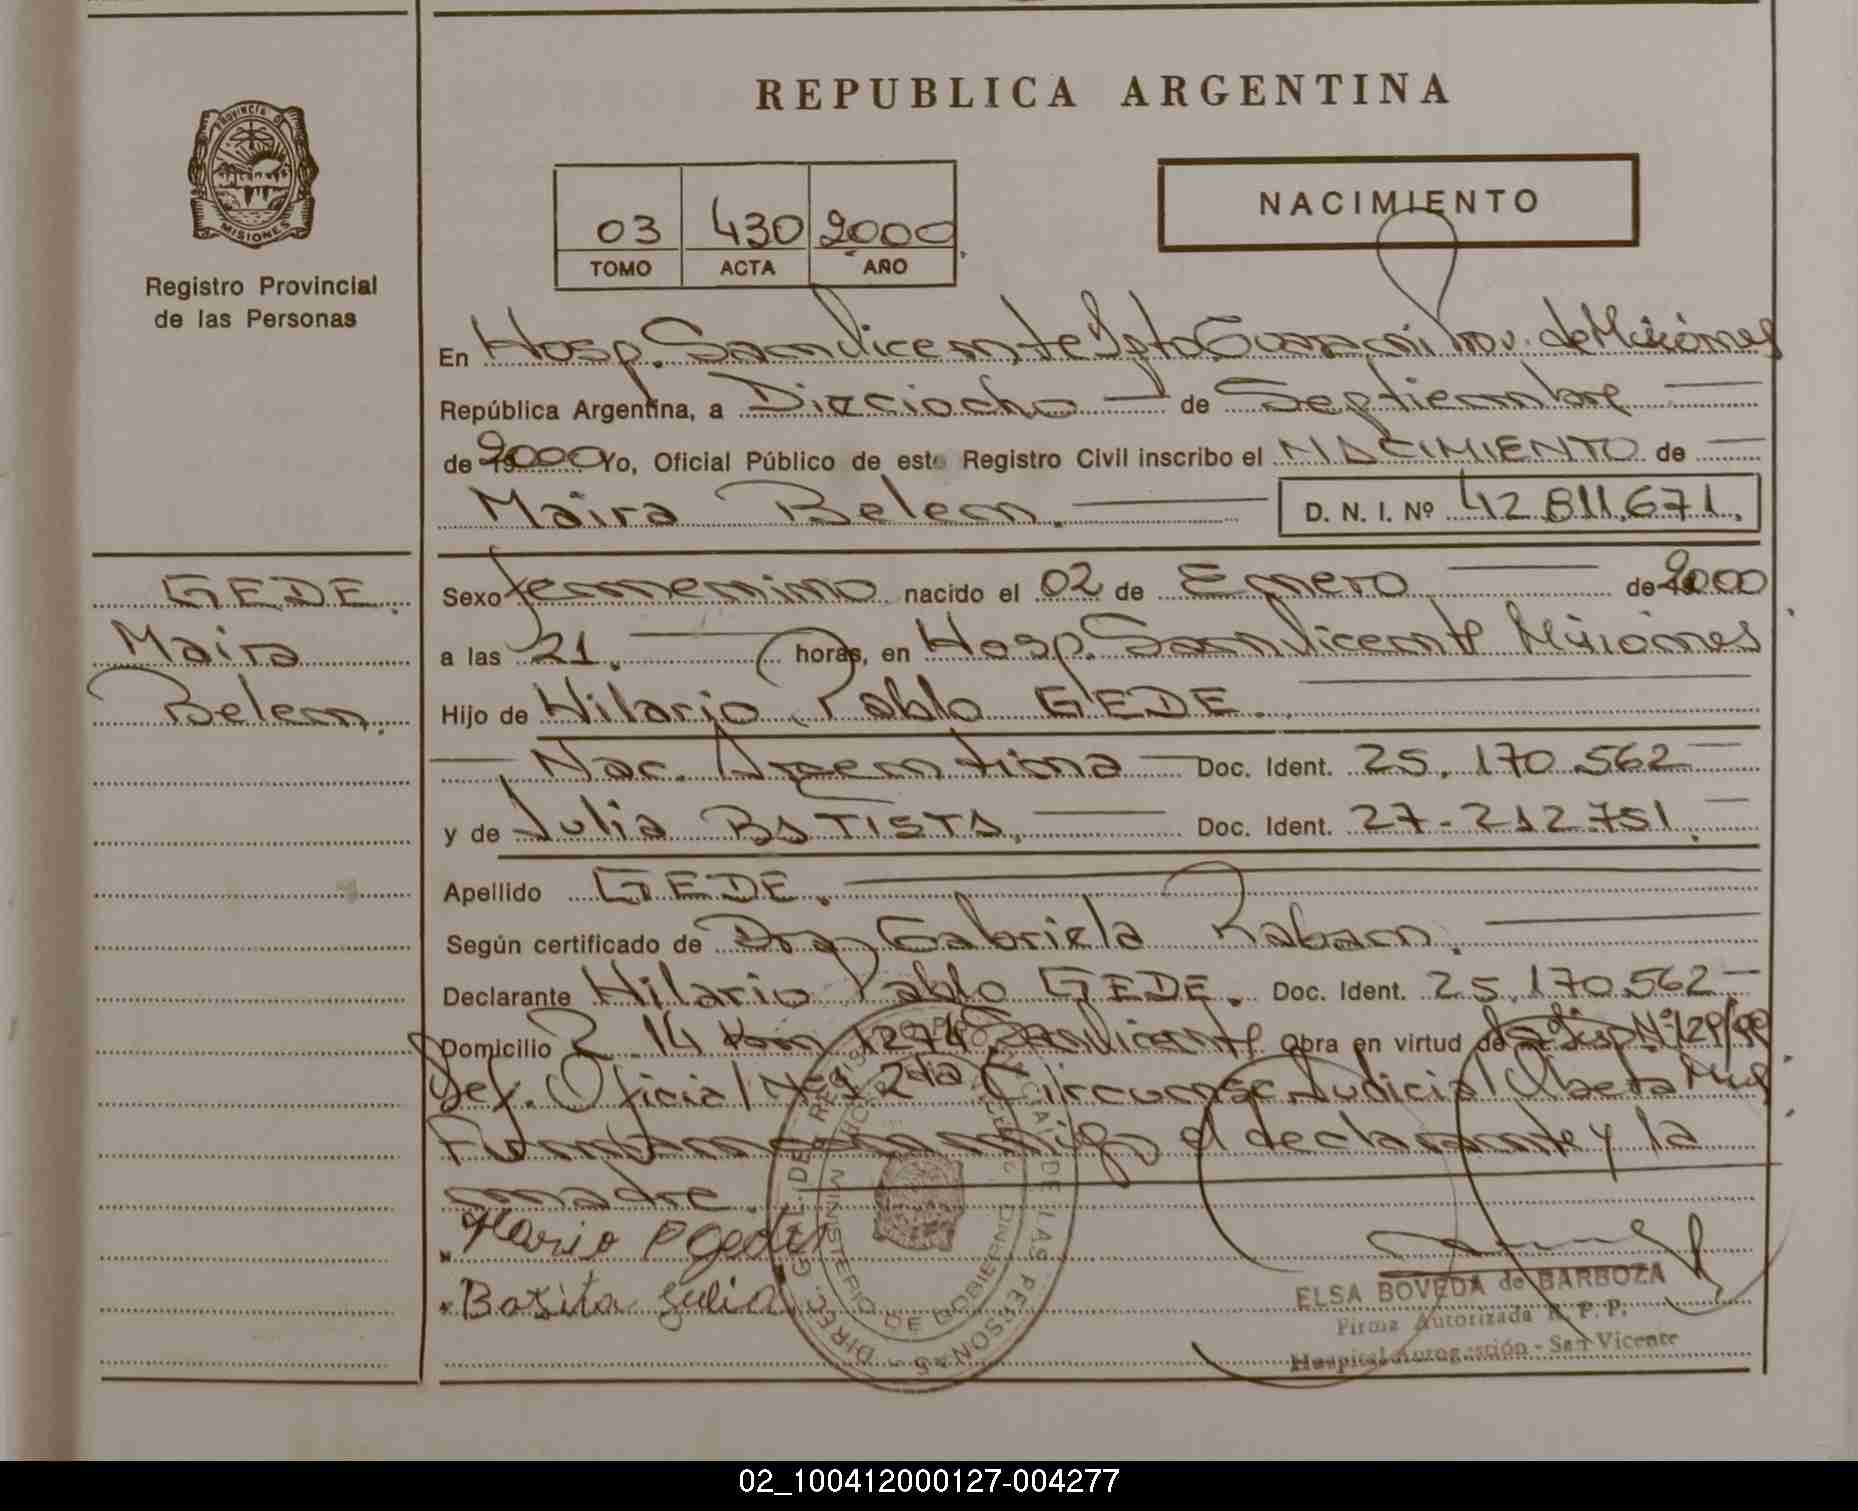 REPUBLICA ARGENTINA
PROVINCIA DE
MISIONES
Registro Provincial
de las Personas
03 430 2000
TOMO ACTA AÑO
NACIMIENTO
En Hosp. San Vicente Dpto Guarani Prov. de Misiones
República Argentina, a Dieciocho de Septiembre
de 2000 Yo, Oficial Público de este Registro Civil inscribo el NACIMIENTO de
Maira Belen. D. N. I. Nº 42.811.671.
GEDE.
Maira
Belen.
Sexo femenino nacido el 02 de Enero de 2000
a las 21. horas, en Hosp. San Vicente Misiones
Hijo de Hilario Pablo GEDE.
Nac. Argentina Doc. Ident. 25.170.562
y de Julia BATISTA. Doc. Ident. 27.212.751.
Apellido GEDE.
Según certificado de Dra Gabriela Raban.
Declarante Hilario Pablo GEDE. Doc. Ident. 25.170.562
Domicilio 14 Km 1274 San Vicente Obra en virtud de Disp Nº 129/99
Def. Oficial Nº 1 2da Circunsc Judicial Obera Mnes
Firman el declarante y la
madre.
Hario P Gede
Basita Julia
DIREC. GRAL. DE REGISTRO PROVINCIAL DE LAS PERSONAS
MINISTERIO DE GOBIERNO
ELSA BOVEDA de BARBOZA
Firma Autorizada R. P. P.
Hospital Autogestión - San Vicente
02_100412000127-004277